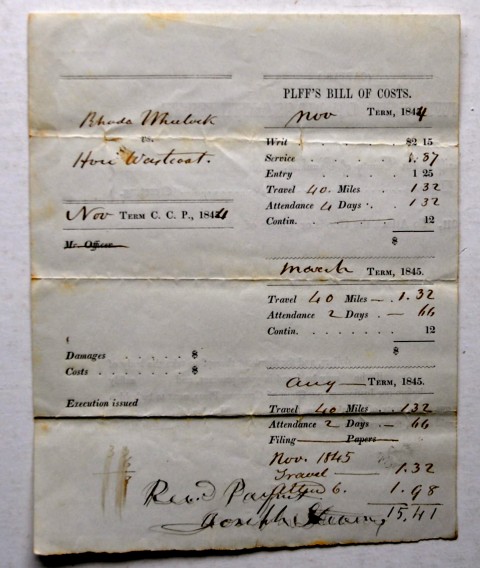 Rhoda Wheelock
vs.
Hore Wastcoat.
Nov Term C. C. P., 1844
Mr. Officer
Damages . . . . . $
Costs . . . . . . $
Execution issued
PLFF'S BILL OF COSTS.
Nov Term, 1844
Writ . . . . . $2 15
Service . . . . 1.87
Entry . . . . . 1 25
Travel 40. Miles . . 1 32
Attendance 4 Days . . 1 32
Contin. . 12
$
March Term, 1845.
Travel 40 Miles — . 1.32
Attendance 2 Days . — 66
Contin. . . . . . . 12
$
Aug — Term, 1845.
Travel 40 Miles . — 1 32
Attendance 2 Days . — 66
Filing Papers
Nov. 1845
Travel — 1.32
6. 1.98
15,41
Rec.d Paymt
Joseph